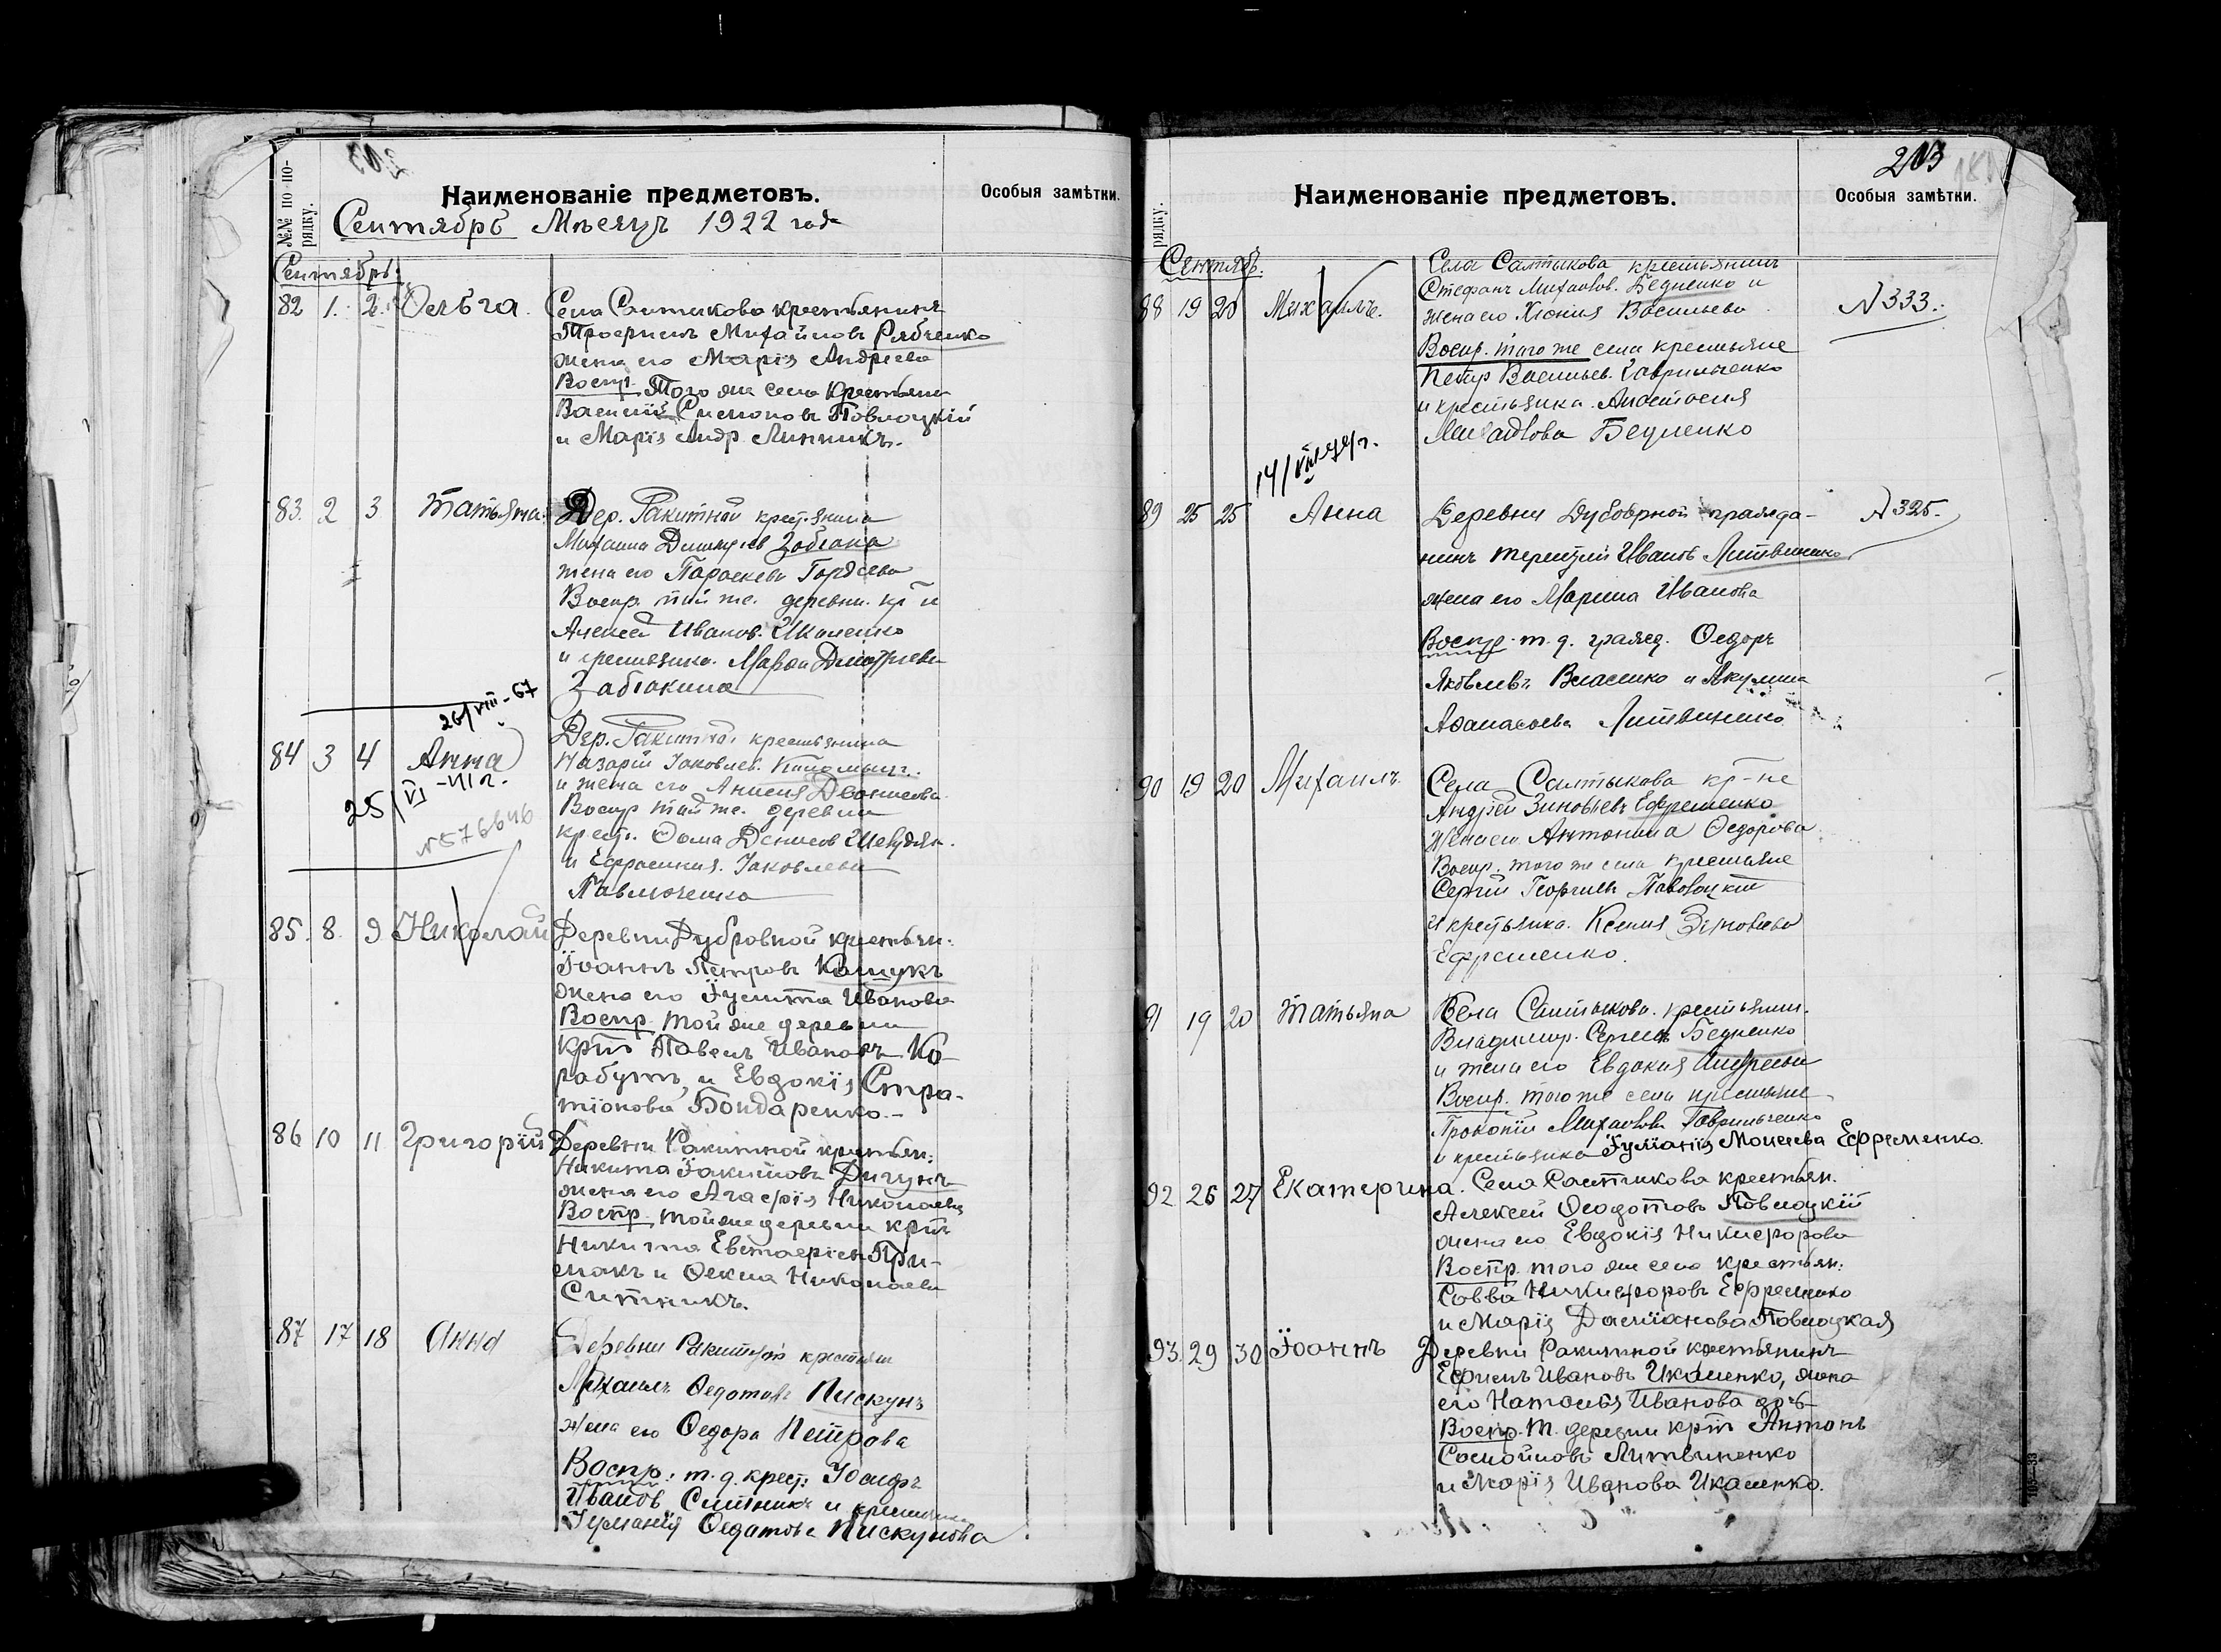 №№ по по-
рядку.
Наименованіе предметовъ.
Особыя замѣтки.
Сентябрь Мѣсяцъ 1922 года
Сентябрь:
82 1. 2. Ольга. Села Салтыкова крестьянинъ
Трофимъ Михайловъ Рябченко
жена его Марія Андреева
Воспр. Того же села крестьяне
Василій СимоновъПовлоцкій
и Марія Андр. Линникъ.
83. 2 3 Татьяна. Дер. Ракитной
Михаила
жена его Параскева Гордѣева
Воспр. той же деревни кр-н
Алексей Иванов. Икаленко
и крестьянка Дмитріева
26/VIII-67
84 3 4 Анна Дер. Ракитной крестьянина
Назарій Іаковлев.
и жена его
25/VI-
Воспр. той же деревни
№576646
крест. Ѳома Денисов
и Ефросинія Іаковлева
Павлюченко
85. 8. 9 Николай Деревни Дубровной крестьян.
Іоаннъ Петровъ Кашукъ
жена его Іулитта Иванова
Воспр. той же деревни
крт Павелъ Ивановъ Ко-
рабутъ, и Евдокія Стра-
тіонова Бондаренко.-
86 10 11 Григорій Деревни Ракитной крестьян:
Никита Іакимовъ Дигунъ
жена его Агафія Николаева
Воспр. той же деревни крт
Никита Евстафіевъ При-
макъ и Ѳекла Николаева
Ситникъ.
87 17 18 Анна Деревни Ракитной крестьян
Михаилъ Ѳедотовъ Пискунъ
жена его Ѳедора Петрова
Воспр: т. д. крест: Іосифъ
Ивановъ Ситникъ и крестьянка
Іуліанія Ѳедотова Пискунова
203
рядку.
Наименованіе предметовъ.
Особыя замѣтки.
Сентяб.
Села Салтыкова крестьянинъ
Стефанъ Михайлов. Бедненко и
88 19 20 Михаилъ. жена его Хіонія Васильева N 333.
Воспр. того же села крестьяне
Петр Васильев. Гаврильченко
и крестьянка Анастасія
Михайлова Бедненко
89 25 25 Анна Деревни Дубовной гражда- N 325.
нинъ Терентій Иванов Литвиненко
жена его Марина Иванова
Воспр. т. д. гражд. Ѳедоръ
Яковлевъ Власенко и Акулина
Аѳанасьева Литвиненко
90 19 20 Михаилъ. Села Салтыкова кр-не
Андрей Зиновьевъ Ефременко
жена его Антонина Ѳедорова
Воспр. того же села крестьяне
Сергій Георгіевъ Павлоцкій
и крестьянка. Ксенія Зиновьева
Ефременко.
91 19 20 Татьяна Села Салтыкова крестьянин.
Владимир. Сергеевъ Бедненко
и жена его Евдокія Андреева
Воспр. того же села крестьяне
Прокопій Михайловъ Гаврильченко
и крестьянка Іуліанія Моисеева Ефременко.
92 26 27 Екатерина. Села Салтыкова крестьян.
Алексей Ѳеодотовъ Повлоцкій
жена его Евдокія Никифорова
Воспр. того же села крестьян:
Савва Никифоровъ Ефременко
и Марія Даміанова Повлоцкая
93. 29 30 Іоаннъ Деревни Ракитной крестьянинъ
Ефимъ Ивановъ Икаленко, жена
его Наталія Иванова
Воспр. т. деревни крт Антонъ
Самойловъ Литвиненко
и Марія Иванова Икаленко.